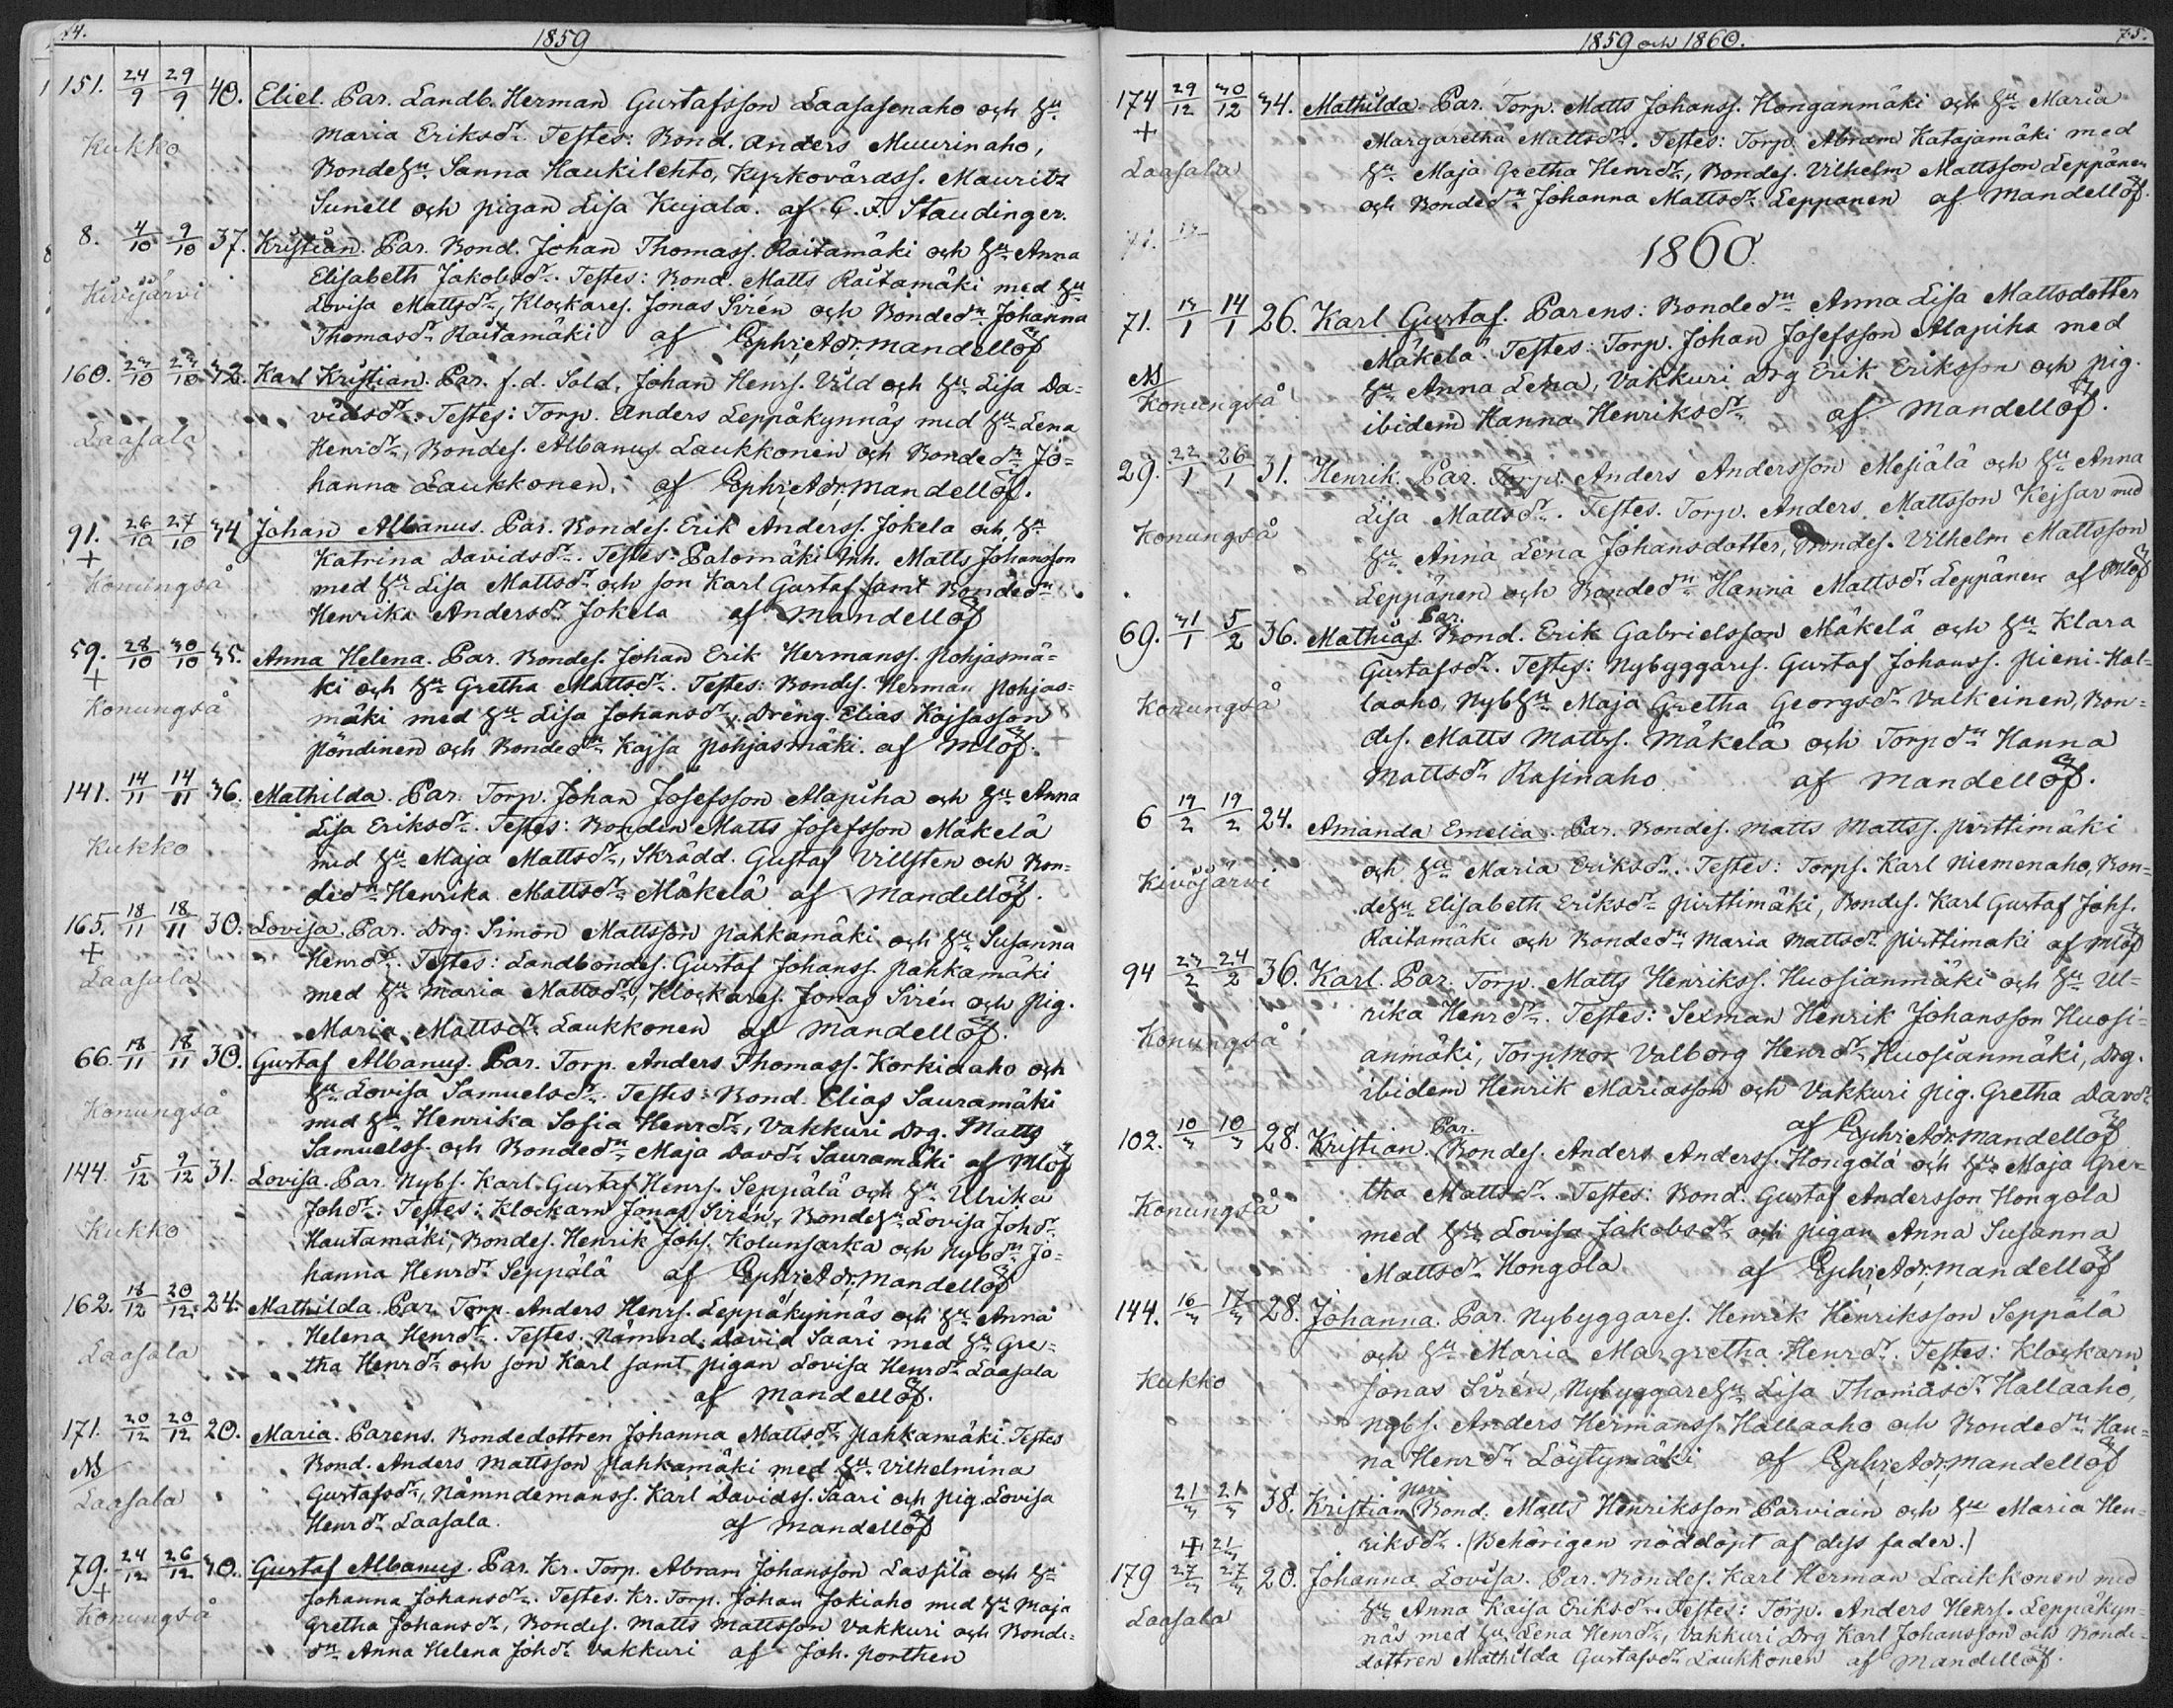 74.
1859
151. 24/9 29/9 40. Eliel. Par. Landb. Herman Gustafsson Laasasenaho och hu
Kukko
Maria Eriksdr. Testes: Bond. Anders Muurinaho,
Bondehu. Sanna Haukilehto, Kyrkovärdss. Maurits
Sunell och pigan Lisa Kujala. af C. F. Staudinger.
8. 4/10 9/10 37. Kristian. Par. Bond. Johan Thomass. Raitamäki och hu Anna
Kivijärvi
Elisabeth Jakobsdr. Testes: Bond. Matts Raitamäki med hu
Lovisa Mattsdr, Klockares. Jonas Sirén och Bondedn Johanna
Thomasdr Raitamäki af Ephr: Adr: Mandellöf
160. 23/10 23/10 32. Karl Kristian. Par. f.d. Sold. Johan Henrs. Vild och hu Lisa Da-
Laasala
vidsdr. Testes: Torp. Anders Leppäkynnäs med hu Lena
Henrdr, Bondes. Albanus Laukkonen och Bondedn Jo-
hanna Laukkonen. af Ephr: Adr: Mandellöf.
91. 26/10 27/10 34 Johan Albanus. Par. Bondes. Erik Anderss. Jokela och hu
+
Konungså
Katrina Davidsdr. Testes: Palomäki Inh. Matts Johansson
med hu Lisa Mattsdr och son Karl Gustaf samt Bondedn
Henrika Andersdr Jokela af Mandellöf
59. 28/10 30/10 35. Anna Helena. Par. Bondes. Johan Erik Hermanss. Pohjasmä-
+
Konungså
ki och hu Gretha Mattsdr. Testes: Bondes. Herman Pohjas-
mäki med hu Lisa Johansdr, Dreng. Elias Kajsasson
Pöndinen och Bondedn Kajsa Pohjasmäki. af Mlöf.
141. 14/11 14/11 36. Mathilda. Par. Torp. Johan Josefsson Alapiha och hu Anna
Kukko
Lisa Eriksdr. Testes: Bonden Matts Josefsson Mäkelä
med hu Maja Mattsdr, Skrädd. Gustaf Villsten och Bon-
dedn Henrika Mattsdr Mäkelä af Mandellöf.
165. 18/11 18/11 30. Lovisa. Par. Drg. Simon Mattsson Pahkamäki och hu Susanna
+
Laasala
Henrdr. Testes: Landbondes. Gustaf Johanss. Pahkamäki
med hu Maria Mattsdr, Klockares. Jonas Sirén och pig.
Maria Mattsdr Laukkonen af Mandellöf.
66. 18/11 18/11 30. Gustaf Albanus. Par. Torp. Anders Thomass. Korkiaaho och
Konungså
hu Lovisa Samuelsdr. Testes: Bond. Elias Sauramäki
med hu Henrika Sofia Henrdr, Vakkuri Drg. Matts
Samuelss. och Bondedn Maja Davdr Sauramäki af Mlöf
144. 5/12 9/12 31. Lovisa. Par. Nybs. Karl Gustaf Henrs. Seppälä och hu Ulrika
Kukko
Johdr. Testes: Klockarn Jonas Sirén, Bondehu Lovisa Johdr
Hautamäki, Bondes. Henrik Johs. Kolunsarka och Nybdn Jo-
hanna Henrdr Seppälä af Ephr: Adr: Mandellöf
162. 18/12 20/12 24. Mathilda. Par. Torp. Anders Henrs. Leppäkynnäs och hu Anna
Laasala
Helena Henrdr. Testes. Nämnd. David Saari med hu Gre-
tha Henrdr och son Karl samt pigan Lovisa Henrdr Laasala
af Mandellöf.
171. 20/12 20/12 20. Maria. Parens. Bondedottren Johanna Mattsdr Pahkamäki. Testes
Laasala
Bond. Anders Mattsson Pahkamäki med hu. Vilhelmina
Gustafsdr, Nämndemanss. Karl Davidss. Saari och pig. Lovisa
Henrdr Laasala. af Mandellöf
79. 24/12 26/12 30. Gustaf Albanus. Par. Kr. Torp. Abram Johansson Lassila och hu
+
Konungså
Johanna Johansdr. Testes. Kr. Torp. Johan Jokiaho med hu Maja
Gretha Johansdr, Bondes. Matts Mattsson Vakkuri och Bonde-
dn Anna Helena Johdr Vakkuri af Joh. Porthen
1859 och 1860.
75.
174 29/12 30/12 34. Mathilda. Par. Torp. Matts Johanss. Honganmäki och hu Maria
+
Laasala
Margaretha Mattsdr. Testes: Torp. Abram Katajamäki med
hu Maja Gretha Henrdr, Bondes. Vilhelm Mattsson Leppänen
och Bondedn Johanna Mattsdr Leppänen af Mandellöf.
1860
71. 13/1 14/1 26. Karl Gustaf. Parens: Bondedn Anna Lisa Mattsdotter
Konungså
Mäkelä. Testes: Torp. Johan Josefsson Alapiha med
hu Anna Lena, Vakkuri Drg Erik Eriksson och pig.
ibidem Hanna Henriksdr af Mandellöf.
29. 22/1 26/1 31. Henrik. Par. Torp. Anders Andersson Mesiälä och hu Anna
Konungså
Lisa Mattsdr. Testes. Torp. Anders Mattsson Kejsar med
hu Anna Lena Johansdotter, Bondes. Vilhelm Mattsson
Leppänen och Bondedn Hanna Mattsdr Leppänen af Mlöf
69. 31/1 5/2 36. Mathias. Par. Bond. Erik Gabrielsson Mäkelä och hu Klara
Konungså
Gustafsdr. Testes: Nybyggares. Gustaf Johanss. Pieni-Hal-
laaho, Nybhu Maja Gretha Georgsdr Valkeinen, Bon-
des. Matts Mattss. Mäkelä och Torpdn Hanna
Mattsdr Rasinaho. af Mandellöf.
6 19/2 19/2 24. Amanda Emelia. Par. Bondes. Matts Mattss. Pirttimäki
Kivijärvi
och hu Maria Eriksdr. Testes: Torps. Karl Niemenaho, Bon-
dehu Elisabeth Eriksdr Pirttimäki, Bondes. Karl Gustaf Johs.
Raitamäki och Bondedn Maria Mattsdr Pirttimäki af Mlöf
94 23/2 24/2 36. Karl. Par. Torp. Matts Henrikss. Huosianmäki och hu Ul-
Konungså
rika Henrdr. Testes: Sexman Henrik Johansson Huosi-
anmäki, Torpmor Valborg Henrdr Huosianmäki, Drg.
ibidem Henrik Mariasson och Vakkuri pig. Gretha Davdr
af Ephr: Adr: Mandellöf
102. 10/3 10/3 28. Kristian. Par. Bondes. Anders Anderss. Hongola och hu Maja Gre-
Konungså
tha Mattsdr. Testes: Bond. Gustaf Andersson Hongola
med hu Lovisa Jakobsdr och pigan Anna Susanna
Mattsdr Hongola af Ephr: Adr: Mandellöf
144. 16/3 17/3 28. Johanna. Par. Nybyggares. Henrik Henriksson Seppälä
Kukko
och hu Maria Margretha Henrdr. Testes: Klockarn
Jonas Sirén, Nybyggarehu Lisa Thomasdr Hallaaho,
Nybs. Anders Hermanss. Hallaaho och Bondedn Han-
na Henrdr Löytymäki af Ephr: Adr: Mandellöf
21/3 21/3 38. Kristian par. Bond. Matts Henriksson Parviain och hu Maria Hen-
+ 21/3
riksdr. (Behörigen nöddöpt af dess fader.)
179 27/3 27/3 20. Johanna Lovisa. Par. Bondes. Karl Herman Laukkonen med
Laasala
hu Anna Kaisa Eriksdr. Testes: Torp. Anders Henrs. Leppäkyn-
näs med hu Lena Henrdr, Vakkuri Drg Karl Johansson och Bonde-
dottren Mathilda Gustafsdr Laukkonen af Mandellöf.